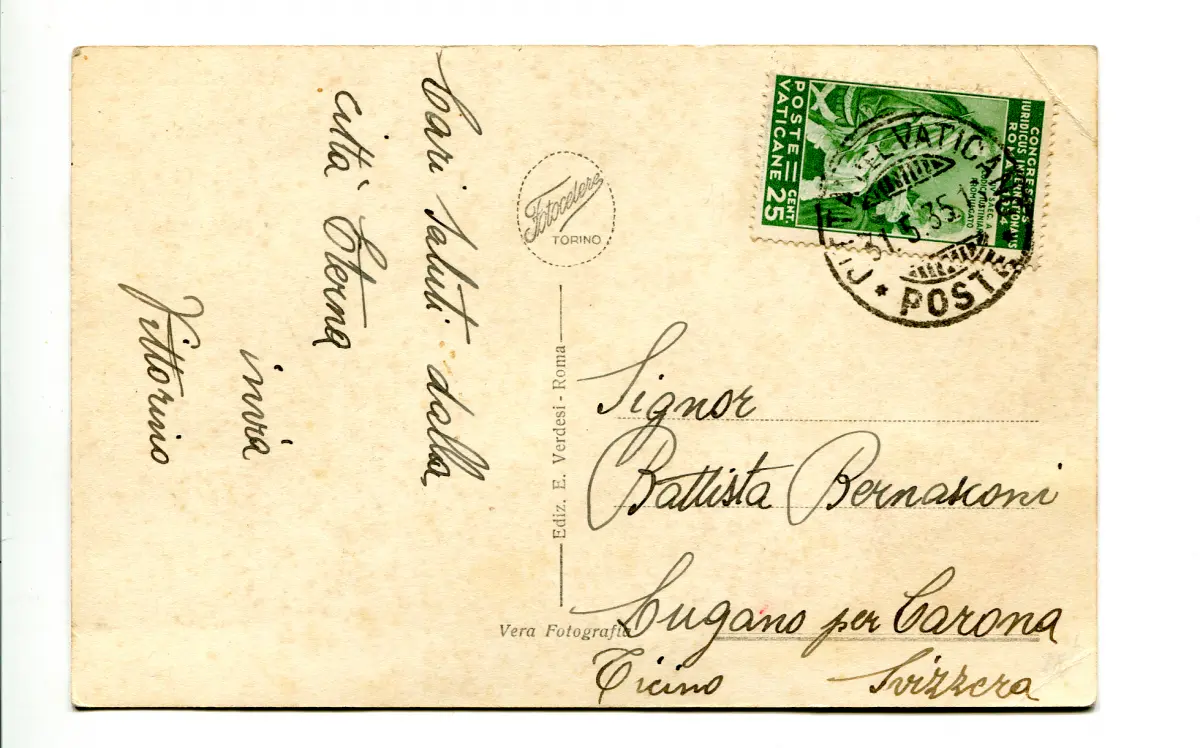 Cari saluti dalla
città Eterna
invia
Vittorino
Fotocelere
TORINO
Ediz. E. Verdesi - Roma
Vera Fotografia
POSTE VATICANE
CENT. 25
CONGRESSUS
IURIDICUS INTERNATIONALIS
CITTÀ DEL VATICANO
31.5.35.
* POSTE
Signor
Battista Bernasconi
Lugano per Carona
Ticino Svizzera